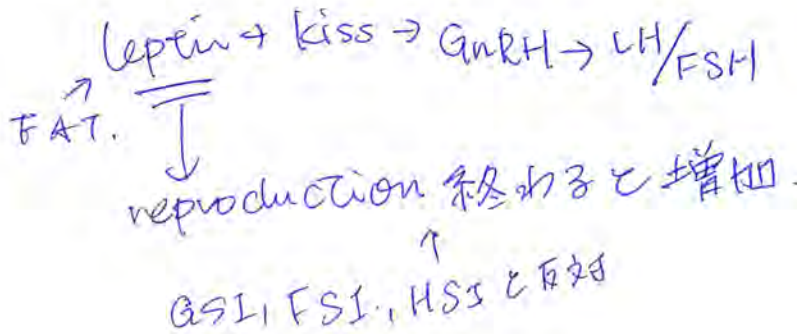 leptin → kiss → GnRH → LH/FSH
FAT.
reproduction 終わると増加.
GSI, FSI., HSIと反対